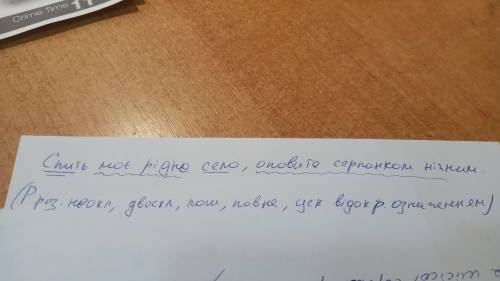 Crime Time 11
Спить моє рідне село, оповите серпанком нічним.
(Р роз. неокл, двоскл, пош, повне, уск відокр. означенням)